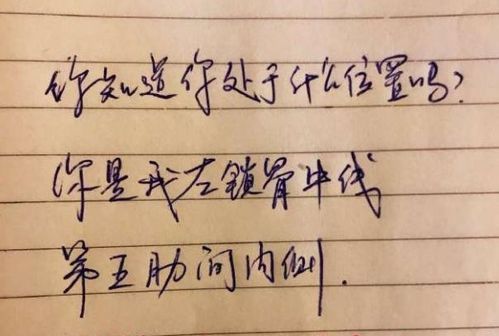 你知道你处于什么位置吗?
你是我左锁骨中线
第五肋间内侧.